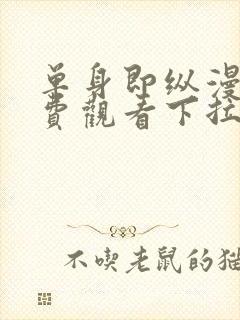 单身即纵漫
費觀看下拉
不喫老鼠的猫